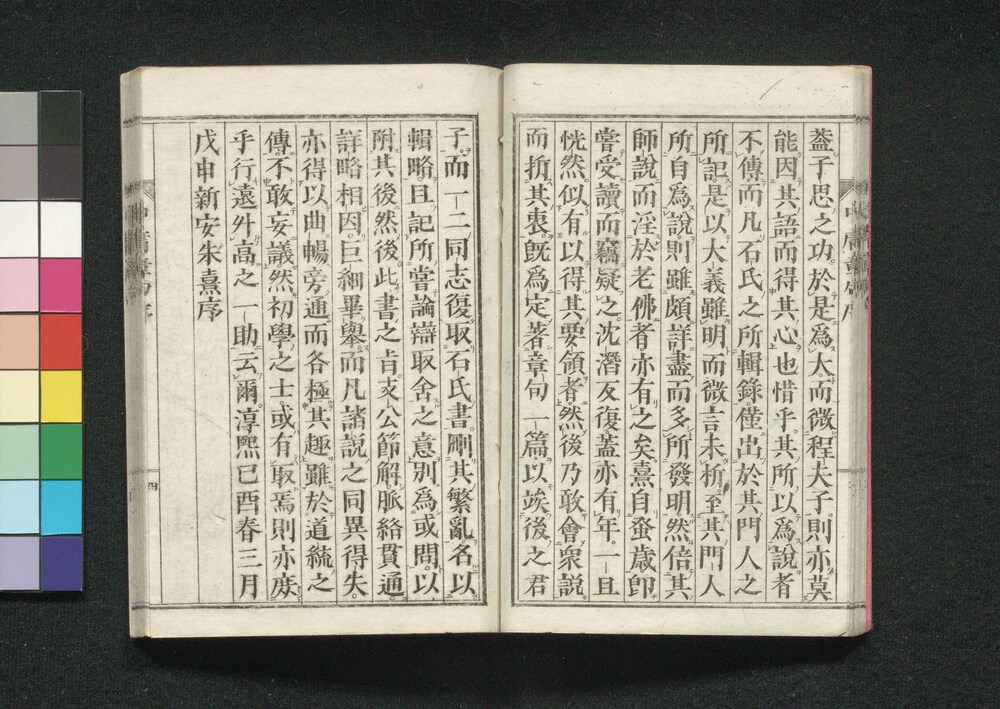 蓋子思之功於是爲大。而微程夫子。則亦莫
能因其語而得其心也。惜乎。其所以爲說者
不傳。而凡石氏之所輯錄。僅出於其門人之
所記。是以大義雖明。而微言未析。至其門人
所自爲說。則雖頗詳盡而多所發明。然倍其
師說而淫於老佛者。亦有之矣。熹自蚤歲卽
嘗受讀而竊疑之。沈潛反復。蓋亦有年。一旦
恍然似有以得其要領者。然後乃敢會衆說
而折其衷。旣爲定著章句一篇。以竢後之君
子。而一二同志復取石氏書。刪其繁亂。名以
輯略。且記所嘗論辯取舍之意。別爲或問。以
附其後。然後此書之旨支分節解。脈絡貫通。
詳略相因。巨細畢舉。而凡諸說之同異得失。
亦得以曲暢旁通而各極其趣。雖於道統之
傳。不敢妄議。然初學之士。或有取焉。則亦庶
乎行遠升高之一助云爾。淳熙己酉春三月
戊申新安朱熹序
中庸章句序
四